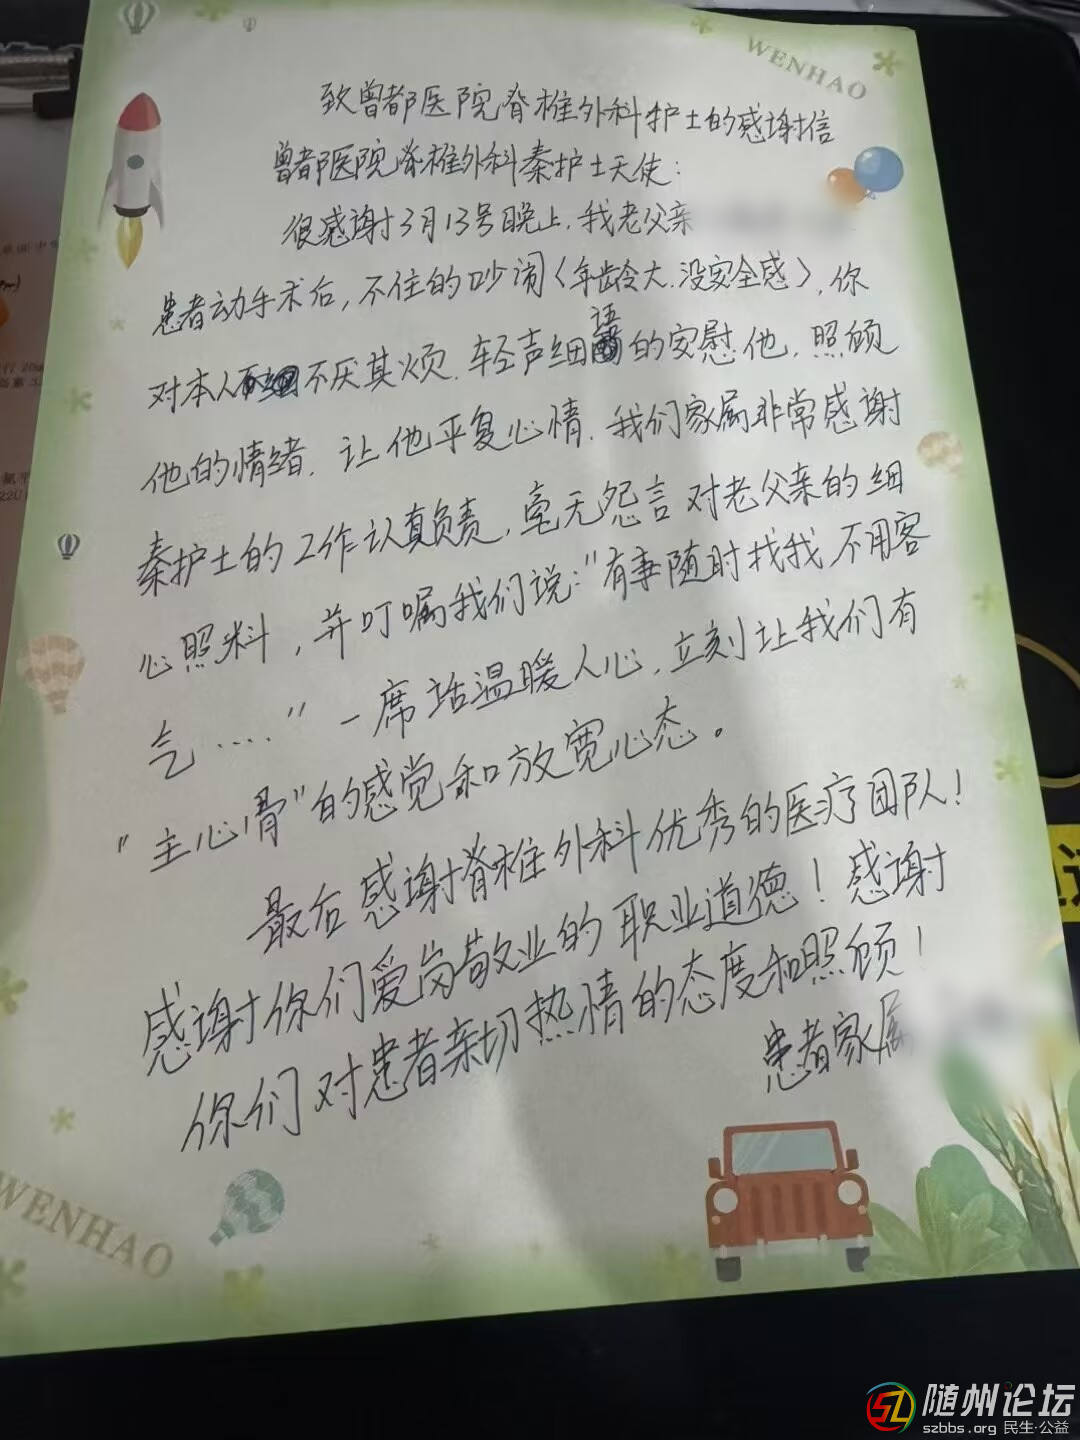 WENHAO
致曾都医院脊椎外科护士的感谢信
曾都医院脊椎外科秦护士天使：
很感谢3月13号晚上，我老父亲
患者动手术后，不住的吵闹（年龄大，没安全感），你
对本人不厌其烦，轻声细语的安慰他，照顾
他的情绪，让他平复心情，我们家属非常感谢
秦护士的工作认真负责，毫无怨言对老父亲的细
心照料，并叮嘱我们说：“有事随时找我不用客
气……”一席话温暖人心，立刻让我们有
“主心骨”的感觉和放宽心态。
最后感谢脊椎外科优秀的医疗团队！
感谢你们爱岗敬业的职业道德！感谢
你们对患者亲切热情的态度和照顾！
患者家属
WENHAO
随州论坛
szbbs.org 民生·公益